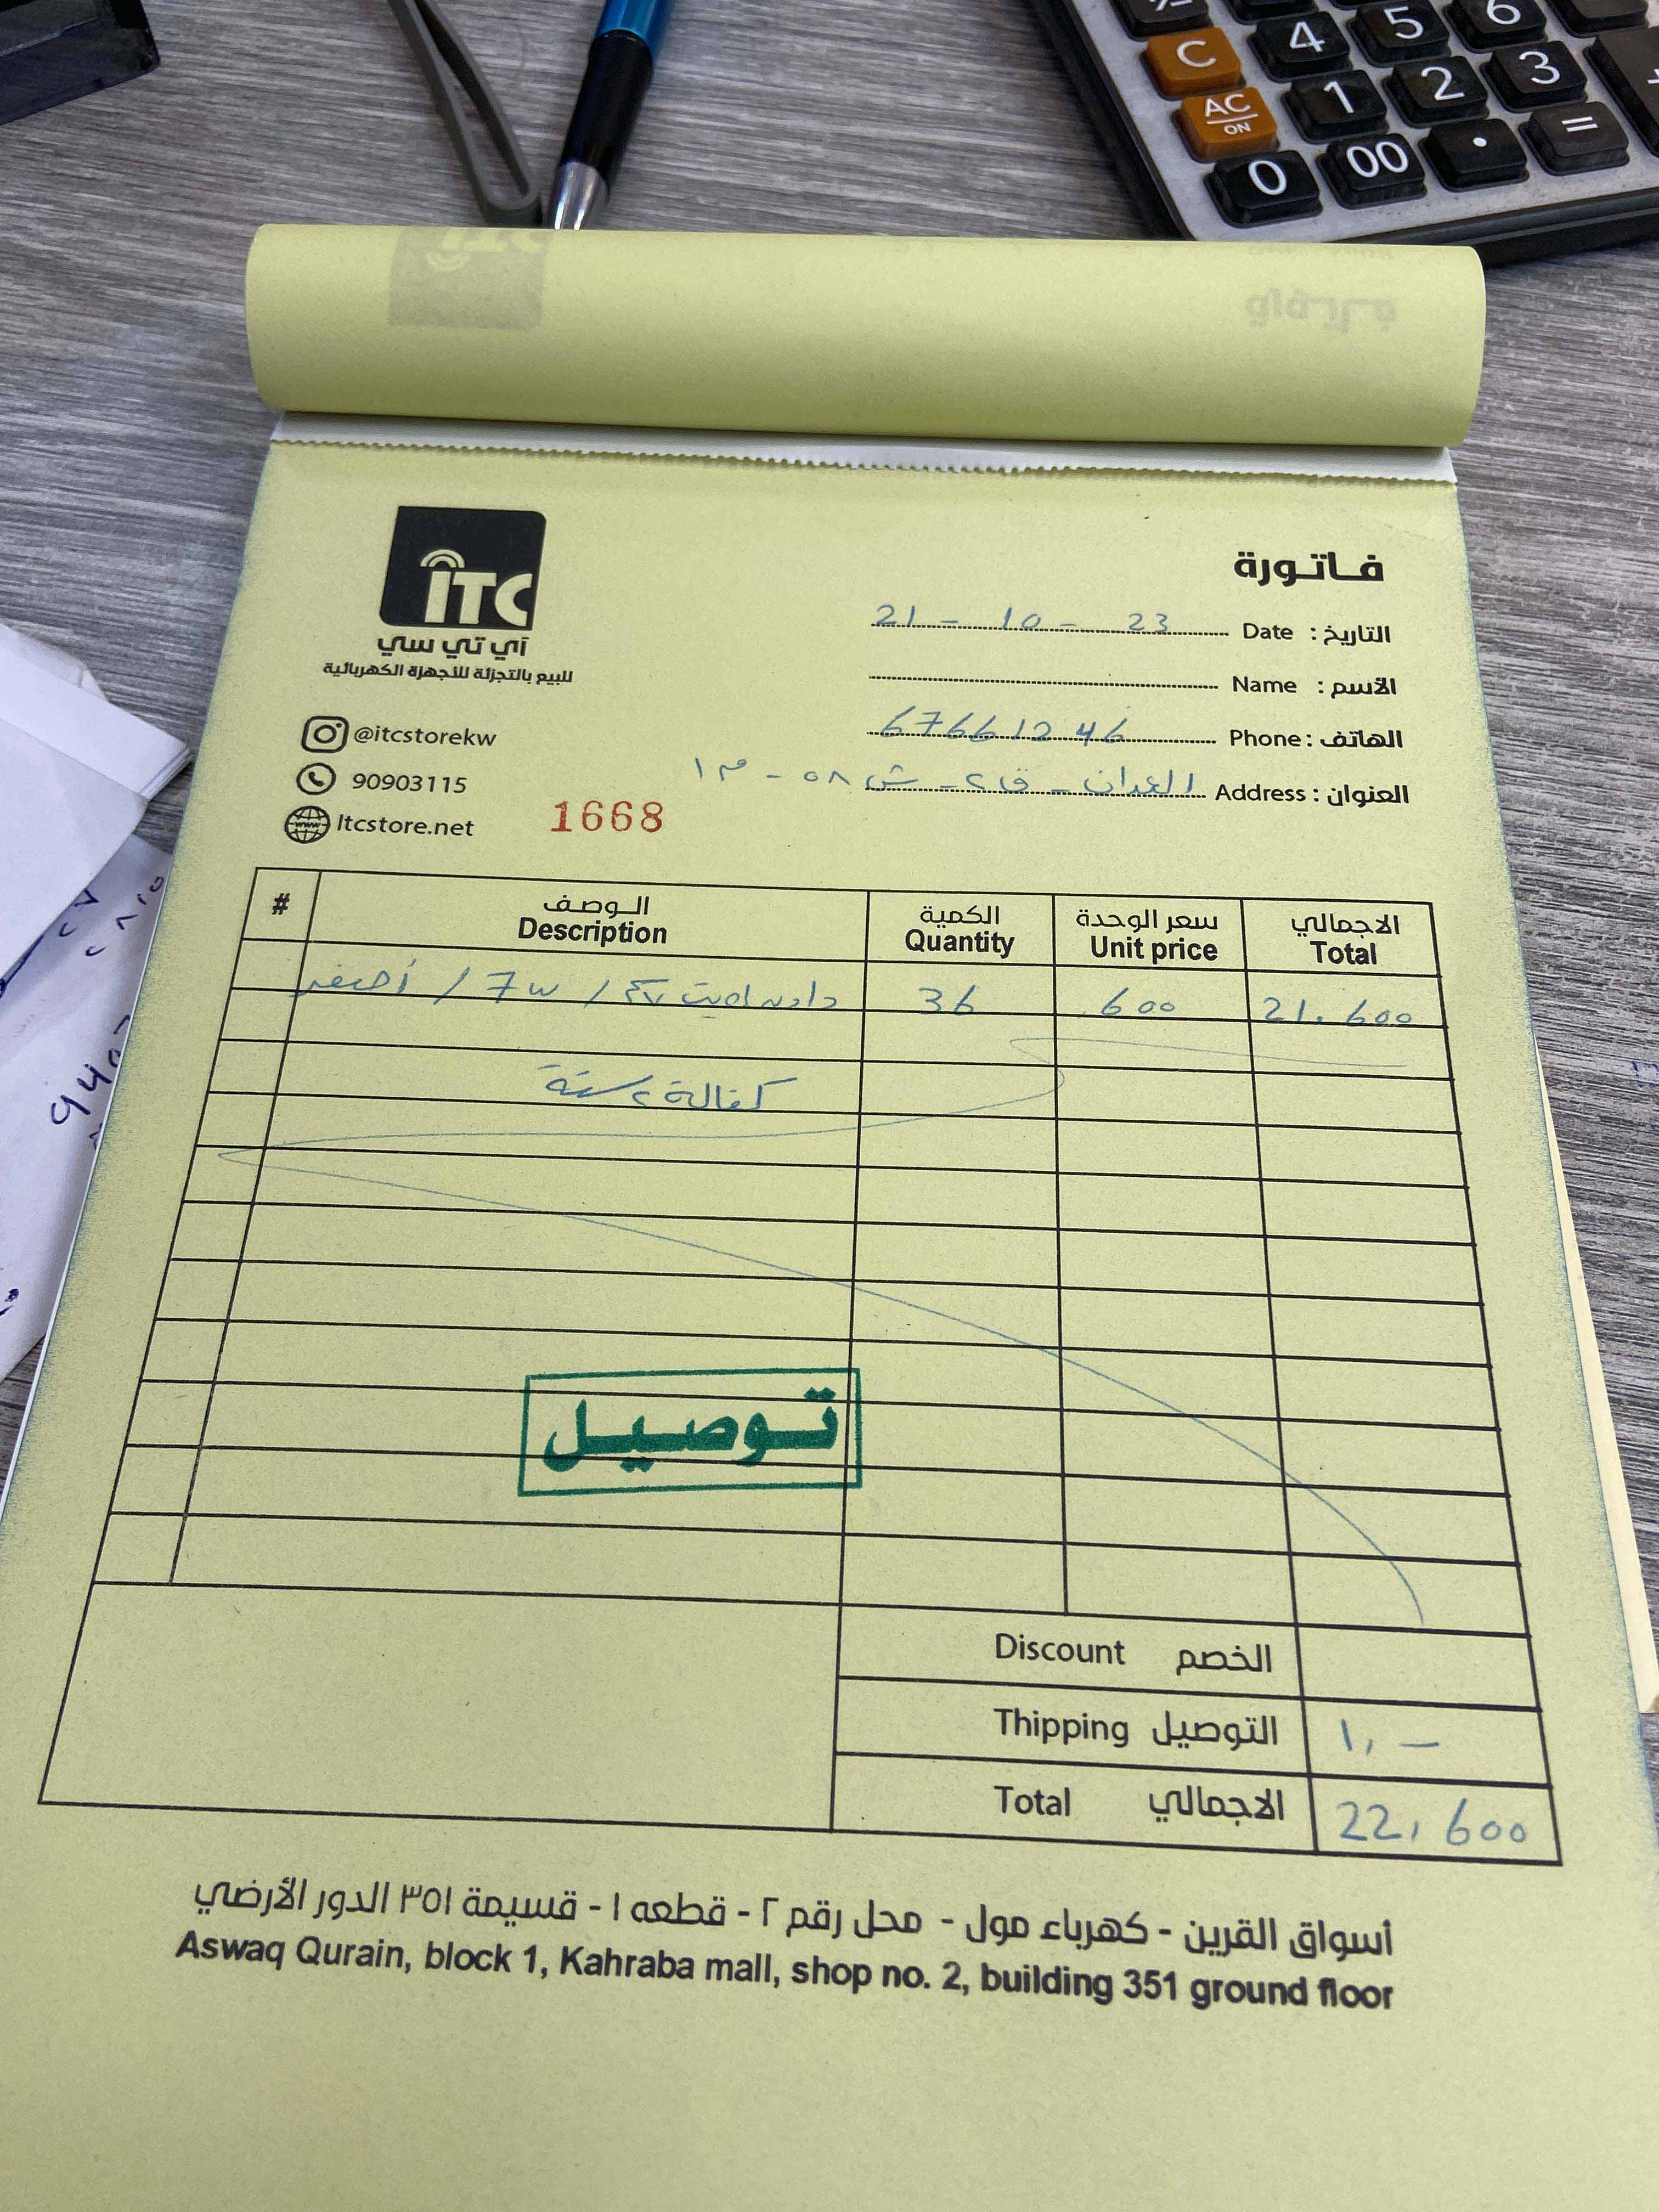 C 4 5 6
AC
ON
1 2 3
0 00 . =
ITC
آي تي سي
للبيع بالتجزئة للأجهزة الكهربائية
@itcstorekw
90903115
Itcstore.net
1668
فاتورة
التاريخ : Date 21 - 10 - 23
الأسم : Name
الهاتف : Phone 67661246
العنوان : Address العدان - ق ٢ - ش ٥٨ - م ١
# الوصف الكمية سعر الوحدة الاجمالي
Description Quantity Unit price Total
داون لايت / 7w / أصفر 36 600 21.600
كفالة ٢ سنة
توصيل
Discount الخصم
Thipping التوصيل ١, -
Total الاجمالي 22, 600
أسواق القرين - كهرباء مول - محل رقم ٢ - قطعه ١ - قسيمة ٣٥١ الدور الأرضي
Aswaq Qurain, block 1, Kahraba mall, shop no. 2, building 351 ground floor